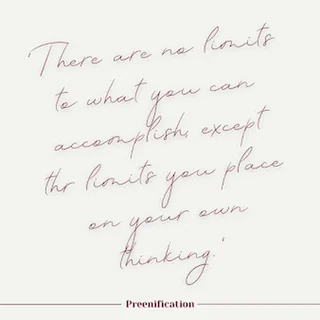 'There are no limits
to what you can
accomplish, except
thr limits you place
on your own
thinking.'
Preenification